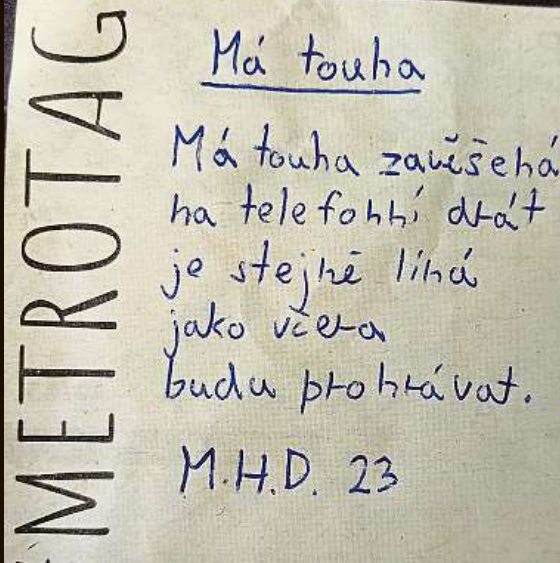 METROTAG
Má touha
Má touha zavěšená
na telefonní drát
je stejně líná
jako včera
budu prohrávat.
M.H.D. 23